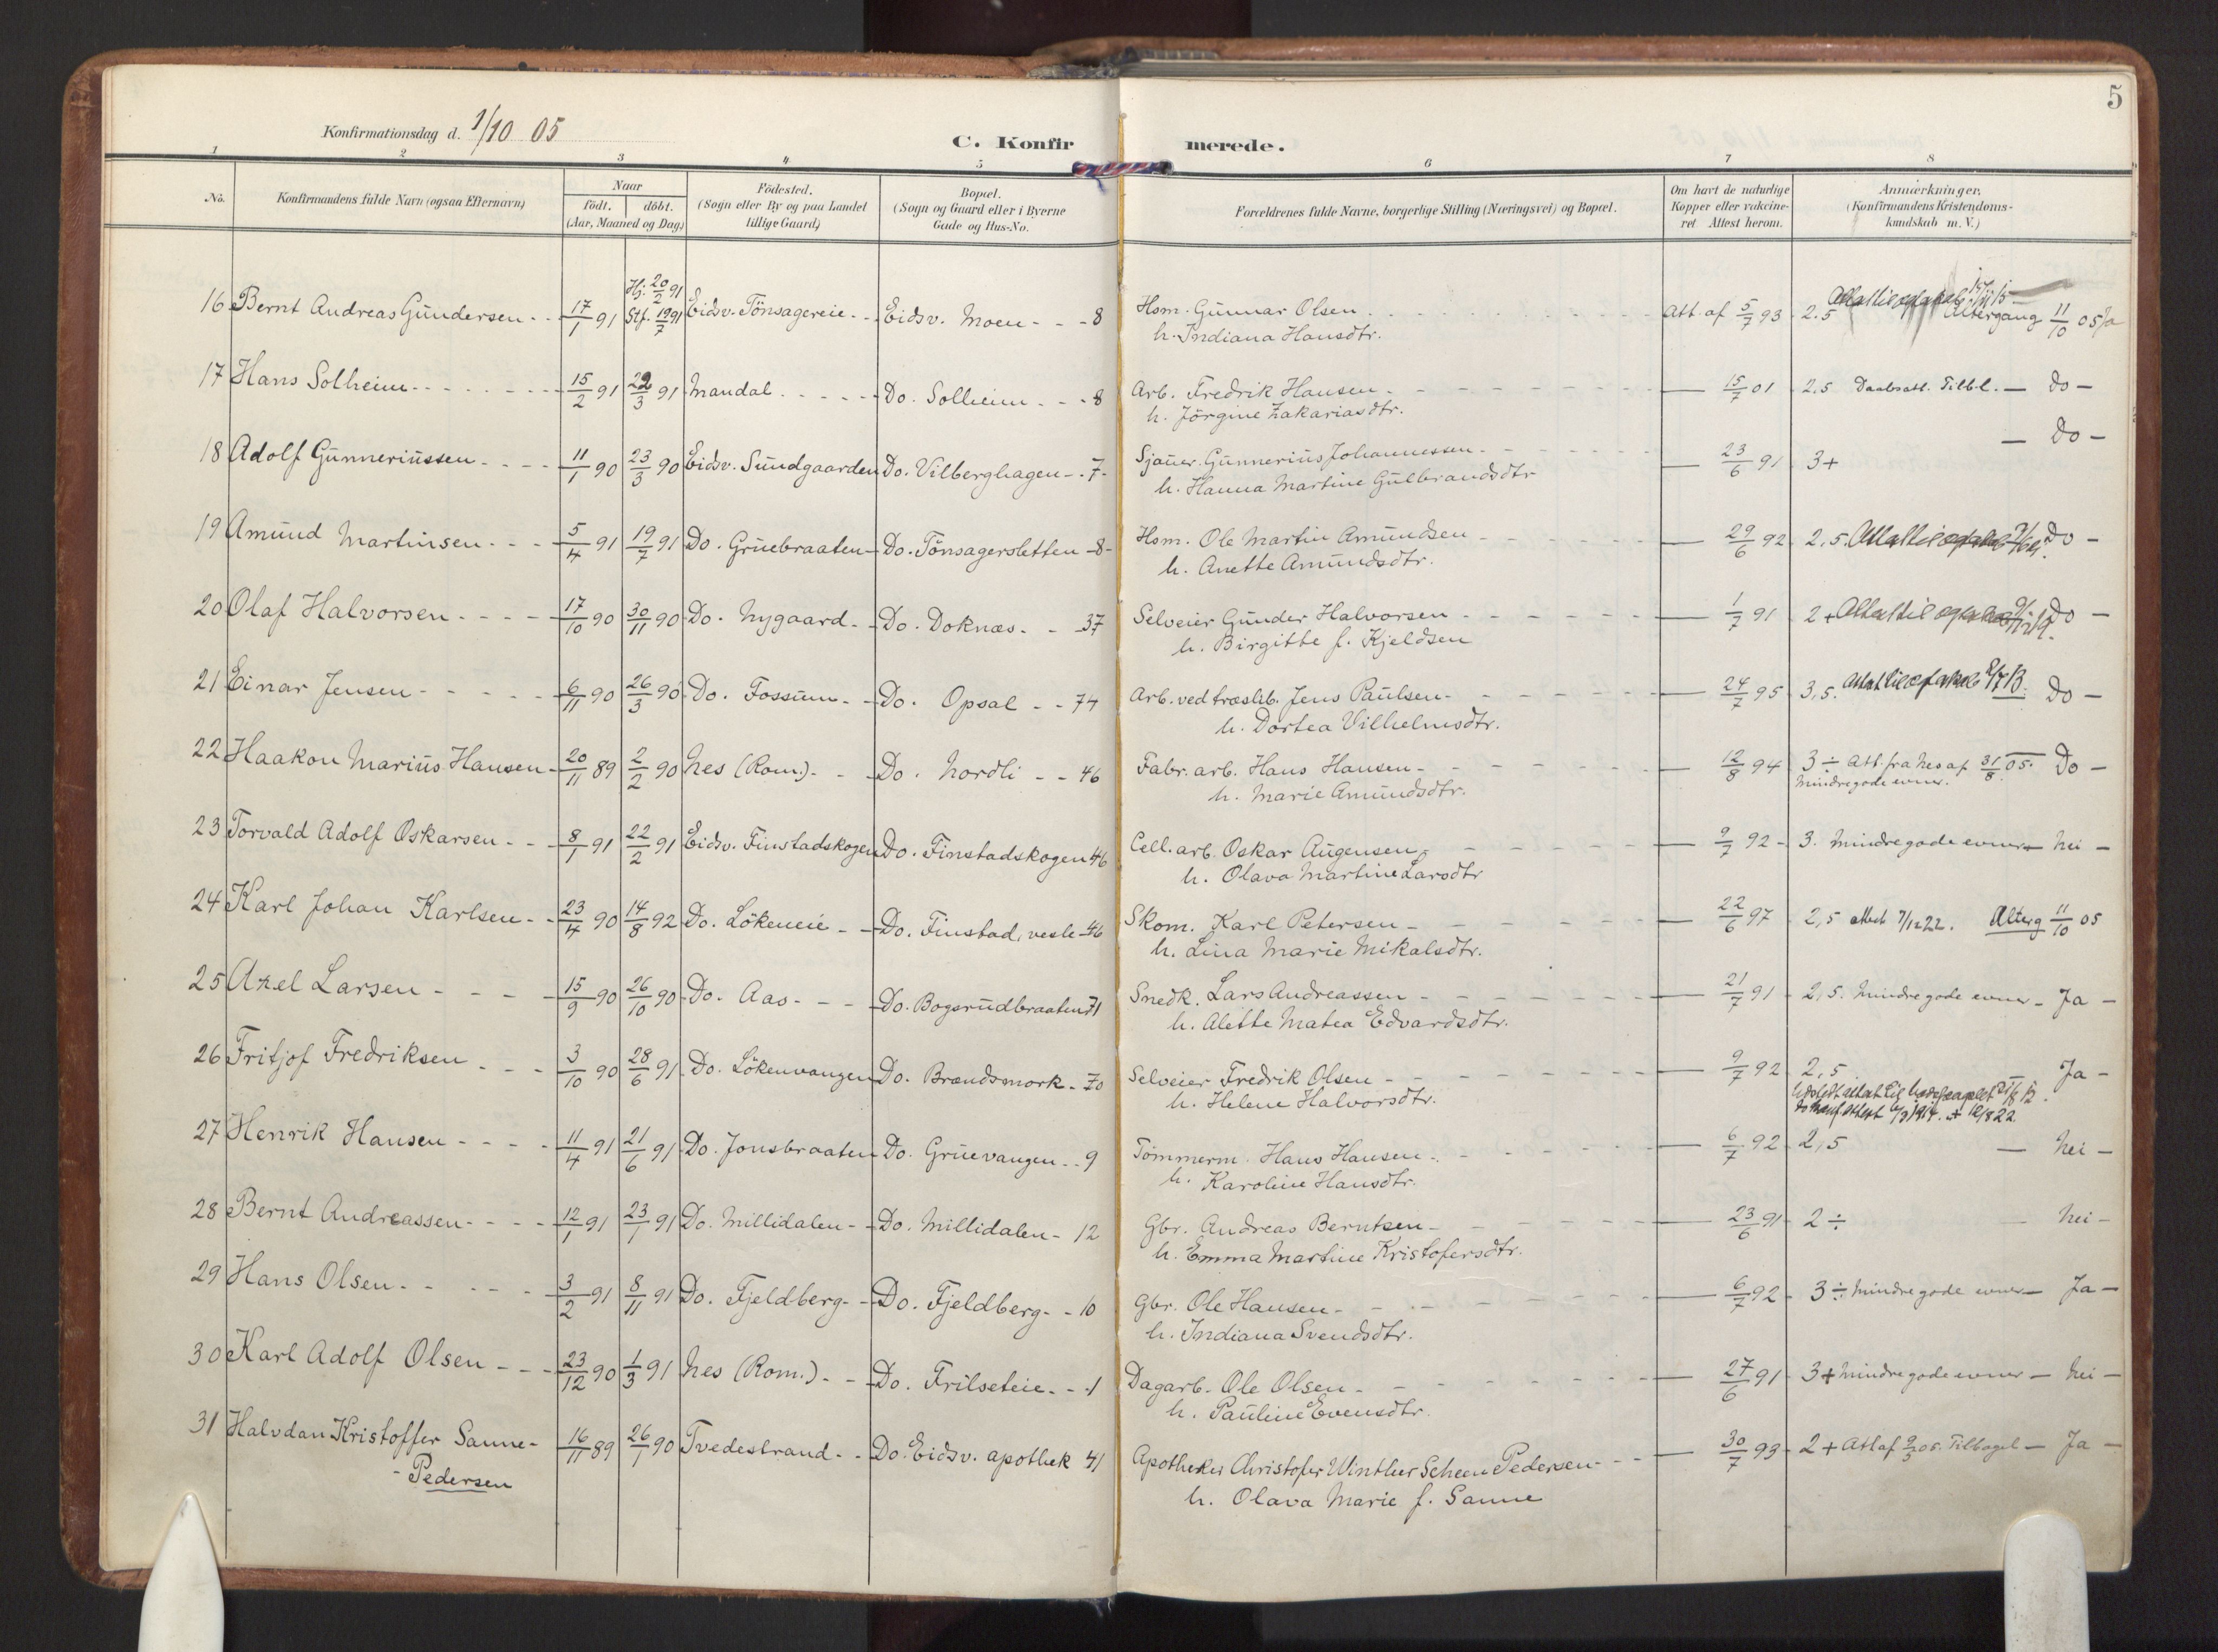 5
Konfirmationsdag d. 1/10 05
C. Konfirmerede.
1 2 3 4 5 6 7 8
No.
Konfirmandens fulde Navn (ogsaa Efternavn)
Naar
födt. döbt.
(Aar, Maaned og Dag)
Födested.
(Sogn eller By og paa Landet
tillige Gaard)
Bopæl.
(Sogn og Gaard eller i Byerne
Gade og Hus-No.
Forældrenes fulde Navne, borgerlige Stilling (Næringsvei) og Bopæl.
Om havt de naturlige
Kopper eller vakcine-
ret Attest herom.
Anmærkninger,
(Konfirmandens Kristendoms-
kundskab m. V.)
16 Bernt Andreas Gundersen 17/1 91 Hj. 20/2 91 Stf. 19/7 91 Eidsv. Tönsagereie Eidsv. Moen 8 Hsm. Gunnar Olsen Att. af 5/7 93 2.5 Altergang 11/10 05 Ja
h. Indiana Hansdtr.
17 Hans Solheim 15/2 91 22/3 91 Mandal Do. Solheim 8 Arb. Fredrik Hansen — 15/7 01 2,5 Daabsatt. Tilb.l. — Do —
h. Jörgine Zakariasdtr.
18 Adolf Gunneriussen 11/1 90 23/3 90 Eidsv. Sundgaarden Do. Vilberghagen 7 Sjauer. Gunnerius Johannessen — 23/6 91 3+ — Do —
h. Hanna Martine Gulbrandsdtr
19 Amund Martinsen 5/4 91 19/7 91 Do. Gruebraaten Do. Tönsagersletten 8 Hsm. Ole Martin Amundsen — 29/6 92 2,5. Do —
h. Anette Amundsdtr.
20 Olaf Halvorsen 17/10 90 30/11 90 Do. Nygaard Do. Doknæs 37 Selveier Gunder Halvorsen — 1/7 91 2+ Do —
h. Birgitte f. Kjeldsen
21 Einar Jensen 6/11 90 26/3 90 Do. Fossum Do. Opsal 74 Arb. ved træslib. Jens Paulsen — 24/7 95 3,5. Do —
h. Dortea Vilhelmsdtr.
22 Haakon Marius Hansen 20/11 89 2/2 90 Nes (Rom.) Do. Nordli 46 Fabr. arb. Hans Hansen — 12/8 94 3 ÷ Att. fra Nes af 31/8 05. Do —
h. Marie Amundsdtr. Mindre gode evner.
23 Torvald Adolf Oskarsen 8/1 91 22/2 91 Eidsv. Finstadskogen Do. Finstadskogen 46 Cell. arb. Oskar Augensen — 9/7 92 3. Mindre gode evner — Nei —
h. Olava Martine Larsdtr
24 Karl Johan Karlsen 23/4 90 14/8 92 Do. Lökeneie Do. Finstad, vesle 46 Skom. Karl Petersen — 22/6 97 2,5 Alterg 11/10 05
h. Lina Marie Mikalsdtr.
25 Axel Larsen 15/9 90 26/10 90 Do. Aas Do. Bogsrudbraaten 71 Snedk. Lars Andreassen — 21/7 91 2,5. Mindre gode evner — Ja —
h. Alette Matea Edvardsdtr.
26 Fritjof Fredriksen 3/10 90 28/6 91 Do. Lökenvangen Do. Brændsmork 70 Selveier Fredrik Olsen — 9/7 92 2,5 — Ja —
h. Helene Halvorsdtr.
27 Henrik Hansen 11/4 91 21/6 91 Do. Jonsbraaten Do. Gruevangen 9 Tömmerm. Hans Hansen — 6/7 92 2,5 — Nei —
h. Karoline Hansdtr.
28 Bernt Andreassen 12/1 91 23/1 91 Do. Millidalen Do. Millidalen 12 Gbr. Andreas Berntsen — 23/6 91 2 ÷ — Nei —
h. Emma Martine Kristofersdtr.
29 Hans Olsen 3/2 91 8/11 91 Do. Fjeldberg Do. Fjeldberg 10 Gbr. Ole Hansen — 6/7 92 3 ÷ Mindre gode evner — Ja —
h. Indiana Svendsdtr.
30 Karl Adolf Olsen 23/12 90 1/3 91 Nes (Rom.) Do. Frilseteie 1 Dagarb. Ole Olsen — 27/6 91 3+ Mindre gode evner — Nei —
h. Pauline Evensdtr.
31 Halvdan Kristoffer Sanne- 16/11 89 26/1 90 Tvedestrand Do. Eidsv. apothek 41 Apotheker Christofer Winther Scheen Pedersen — 30/7 93 2 + Att af 9/5 05. — Ja —
-Pedersen h. Olava Marie f. Sanne